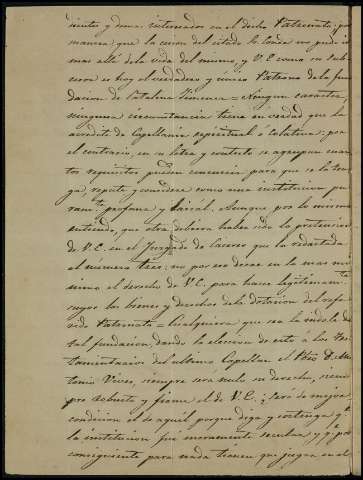 dientes y demas interesados en el dicho Patronato; por
manera que la cesion del citado lo Conde no pudo ir
mas allá de la vida del mismo, y V.E. como su sub-
cesor es hoy el verdadero y unico Patrono de la fun-
dacion de Catalina Gimenez = Ningun caracter,
ninguna circunstancia tiene en verdad que la
acredite de Capellania espiritual ó colativa; por
el contrario, en su letra y contesto se agrupan cuan-
tos requisitos pueden concurrir para que se la ten-
ga, repute y considere como una institucion pu-
ramte profana y laical. Aunque por lo mismo
entiendo, que otra debiera haber sido la pretencion
de V.E. en el Juzgado de Caceres que la redactada
el número tres; no por eso decae en lo mas mí-
nimo el derecho de V.E. para hacer legitimamte
suyos los bienes y derechos de la dotacion del refe-
rido Patronato = Cualquiera que sea la indole de
tal fundacion, dando la eleccion de este á los Tes-
tamentarios del ultimo Capellan el Pbro D. An-
tonio Vivas, siempre será nulo su derecho, siem-
pre robusto y firme el de V.E.; ¿Será de mejor
condicion el de aquel porque diga y sostenga qe
la institucion fue meramente secular, y qe por
consiguiente para nada tienen que juegar en el